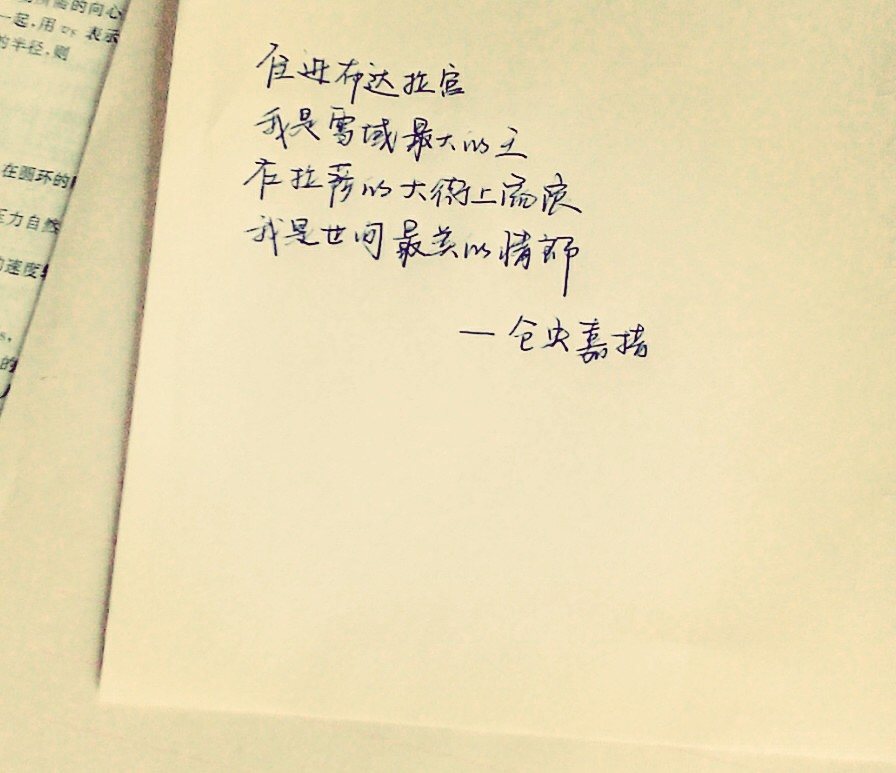 的向心
一起,用 表示
的半径,则
在圆环的
压力自然
的速度
的
住进布达拉宫
我是雪域最大的王
在拉萨的大街上流浪
我是世间最美的情郎
—仓央嘉措